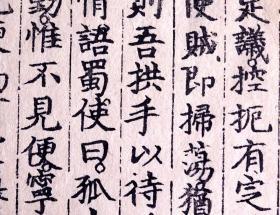 定議控扼有定
便賊即掃蕩猶
則吾拱手以待
情語蜀使曰孤
勤惟不見便寧